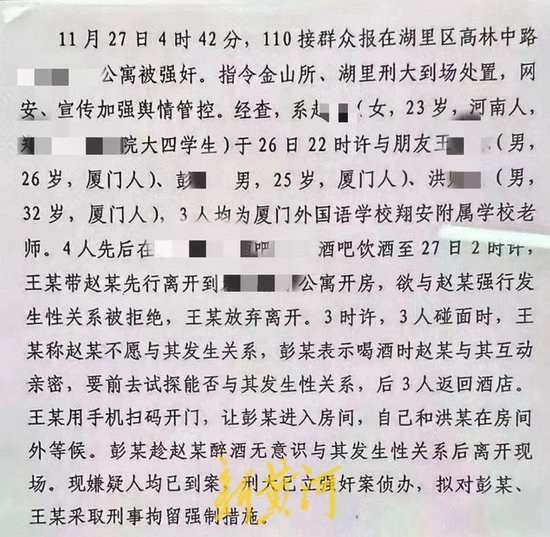 11月27日4时42分，110接群众报在湖里区高林中路
公寓被强奸。指令金山所、湖里刑大到场处置，网
安、宣传加强舆情管控。经查，系赵（女，23岁，河南人，
院大四学生）于26日22时许与朋友王（男，
26岁，厦门人）、彭 男，25岁，厦门人）、洪（男，
32岁，厦门人），3人均为厦门外国语学校翔安附属学校老
师。4人先后在 酒吧饮酒至27日2时许，
王某带赵某先行离开到 公寓开房，欲与赵某强行发
生性关系被拒绝，王某放弃离开。3时许，3人碰面时，王
某称赵某不愿与其发生关系，彭某表示喝酒时赵某与其互动
亲密，要前去试探能否与其发生性关系，后3人返回酒店。
王某用手机扫码开门，让彭某进入房间，自己和洪某在房间
外等候。彭某趁赵某醉酒无意识与其发生性关系后离开现
场。现嫌疑人均已到案，刑大已立强奸案侦办，拟对彭某、
王某采取刑事拘留强制措施。
新黄河